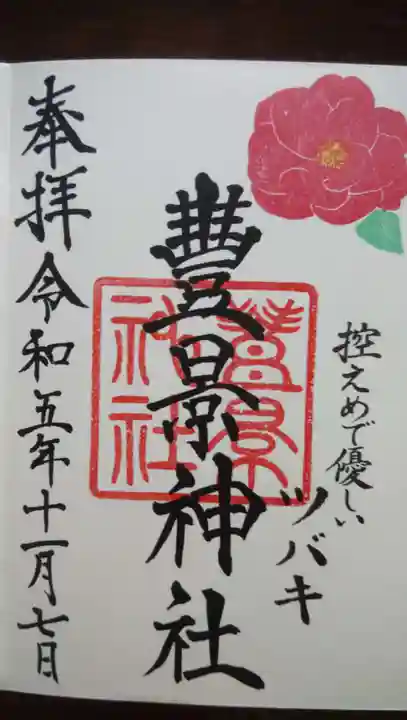 控えめで優しい
ツバキ
豊景神社
豊景神社
奉拝 令和五年十一月七日